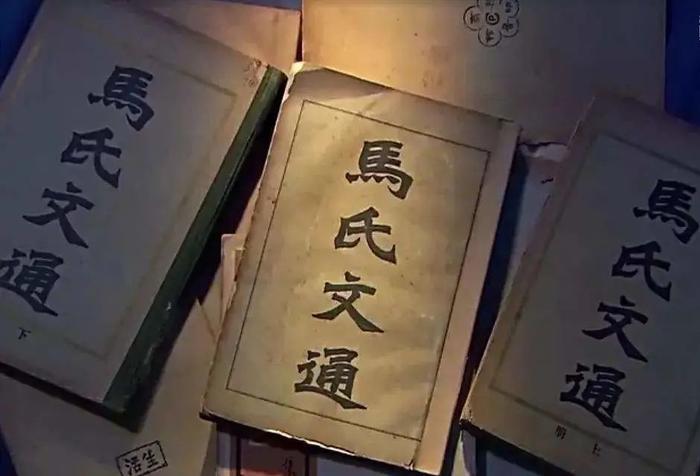 馬氏文通
下
馬氏文通
馬氏文通
上冊
生活